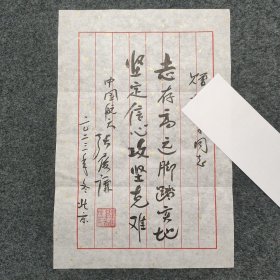 同志
志存高远脚踏实地
坚定信心攻坚克难
中国航天
二〇二三年冬 北京